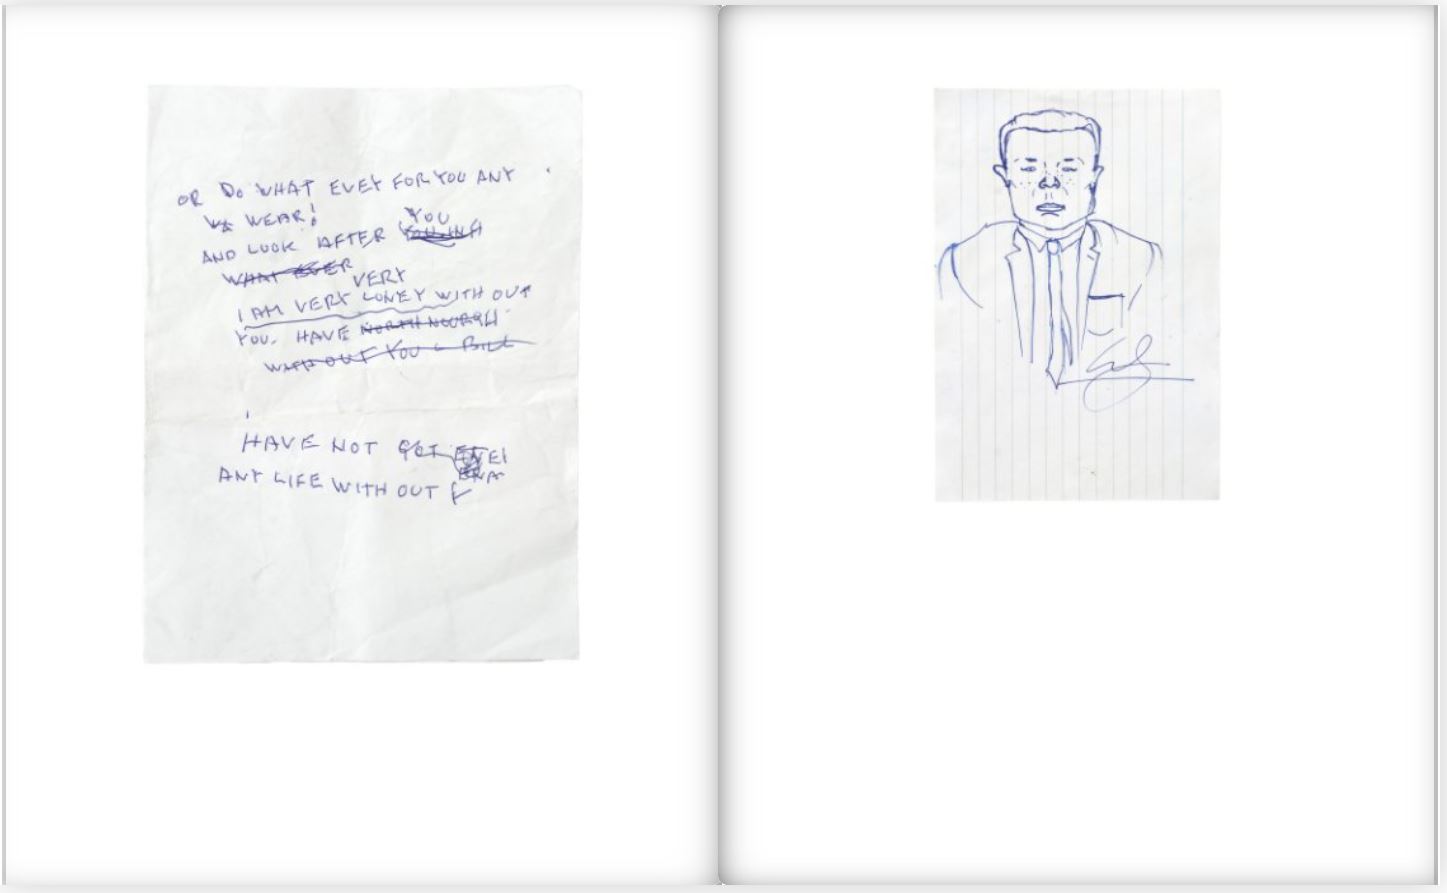 OR DO WHAT EVEY FOR YOU ANY
WEAR!
YOU
AND LOOK AFTER
WHAT EVER
VERY
I AM VERY LONEY WITH OUT
YOU. HAVE
WITH OUT YOU BILL
HAVE NOT GOT
ANY LIFE WITH OUT